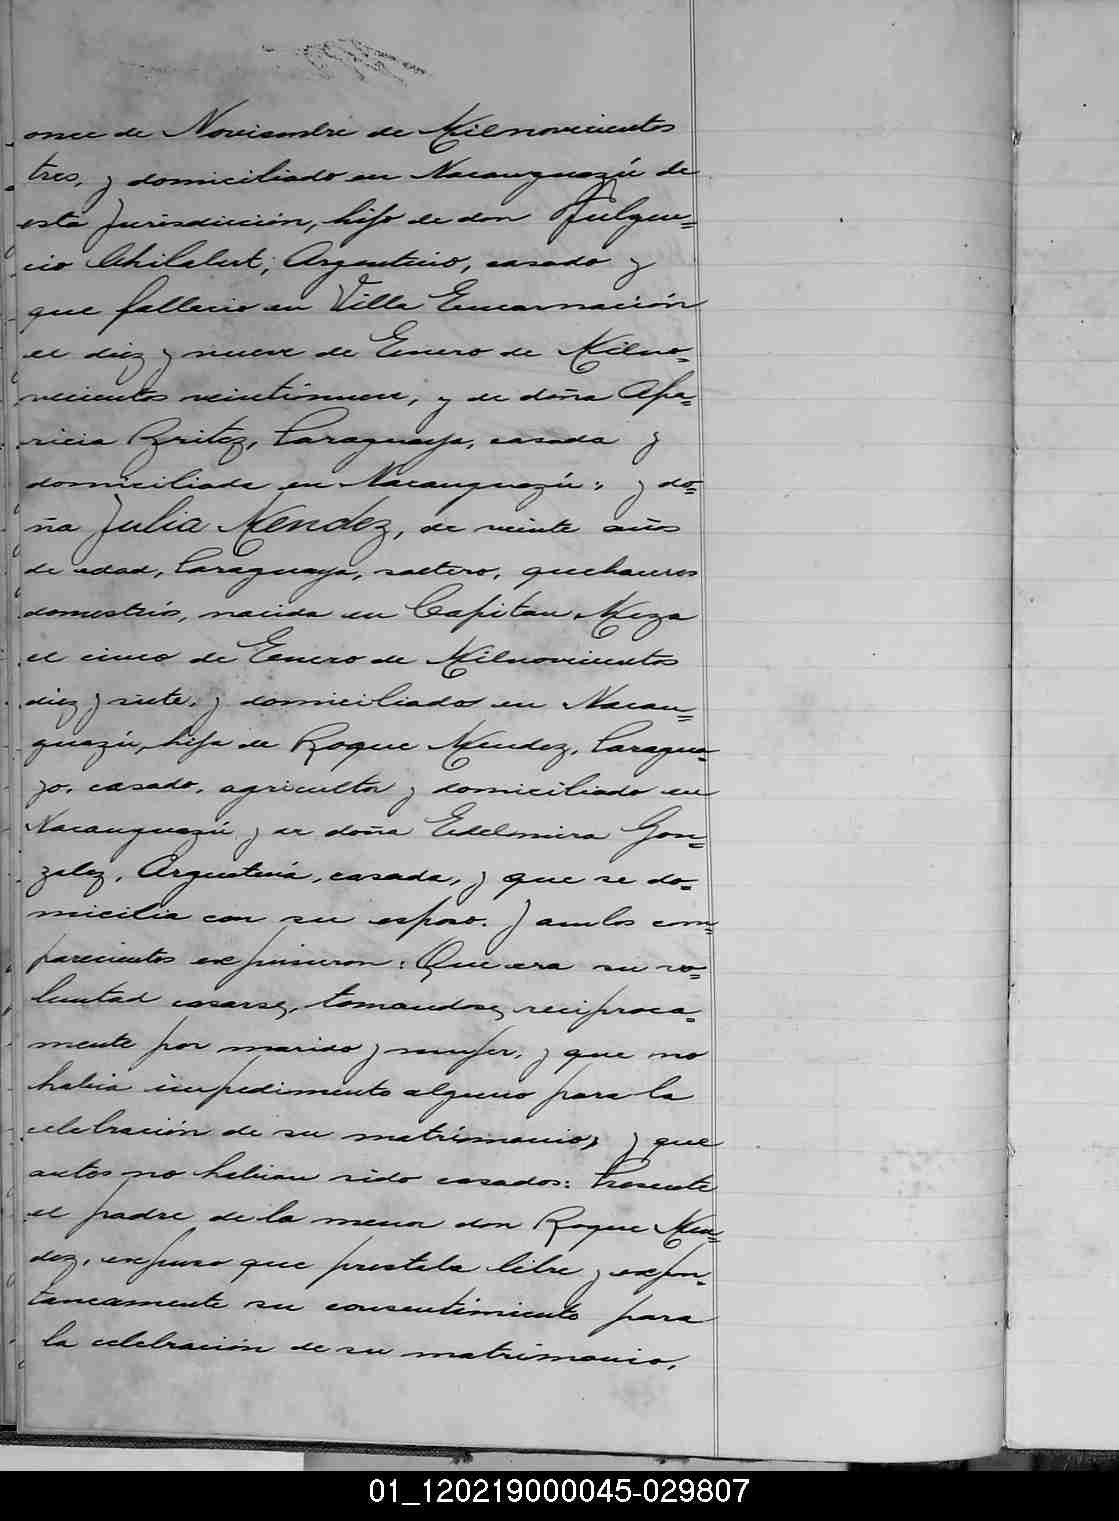 once de Noviembre de Milnovecientos
tres, y domiciliado en Nacanguazú de
esta Jurisdicción, hijo de don Fulgen=
cio Chilabert, Argentino, casado y
que fallecio en Villa Encarnación
el diez y nueve de Enero de Milno=
vecientos veintinueve, y de doña Apa=
ricia Britez, Paraguaya, casada y
domiciliada en Nacanguazú; y do=
ña Julia Mendez, de veinte años
de edad, Paraguaya, soltera, quehaceres
domestícos, nacida en Capitan Meza
el cinco de Enero de Milnovecientos
diez y siete, y domiciliados en Nacan=
guazú, hija de Roque Mendez, Paragua=
yo, casado, agricultor y domiciliado en
Nacanguazú y de doña Edelmira Gon=
zalez, Argentina, casada, y que se do=
micilia con su esposo. Y ambos com=
parecientes expusieron: Que era su vo=
luntad casarse, tomandose reciproca=
mente por marido y mujer, y que no
habia impedimento alguno para la
celebración de su matrimonio, y que
antes no habian sido casados: Presente
el padre de la menor don Roque Men=
dez, expuso que prestaba libre y expon=
taneamente su consentimiento para
la celebración de su matrimonio,
01_120219000045-029807